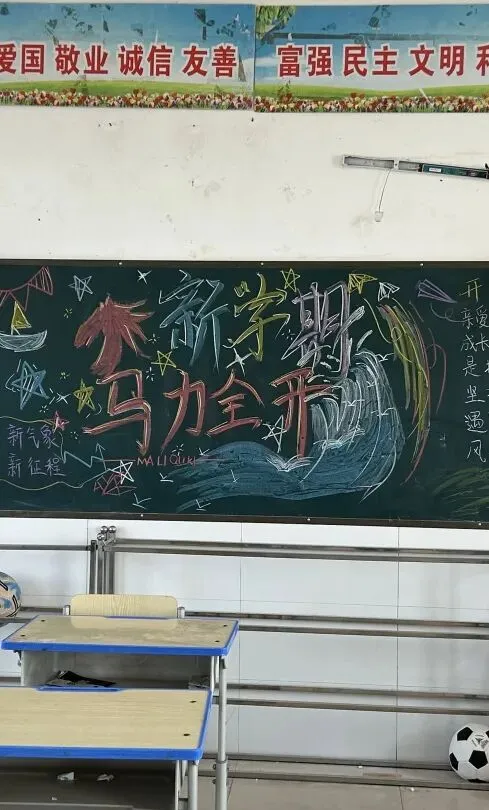 爱国 敬业 诚信 友善
富强 民主 文明
新学期
马力全开
MALIQUKI
新气象
新征程
开
亲爱
成长
是
坐
遇
风